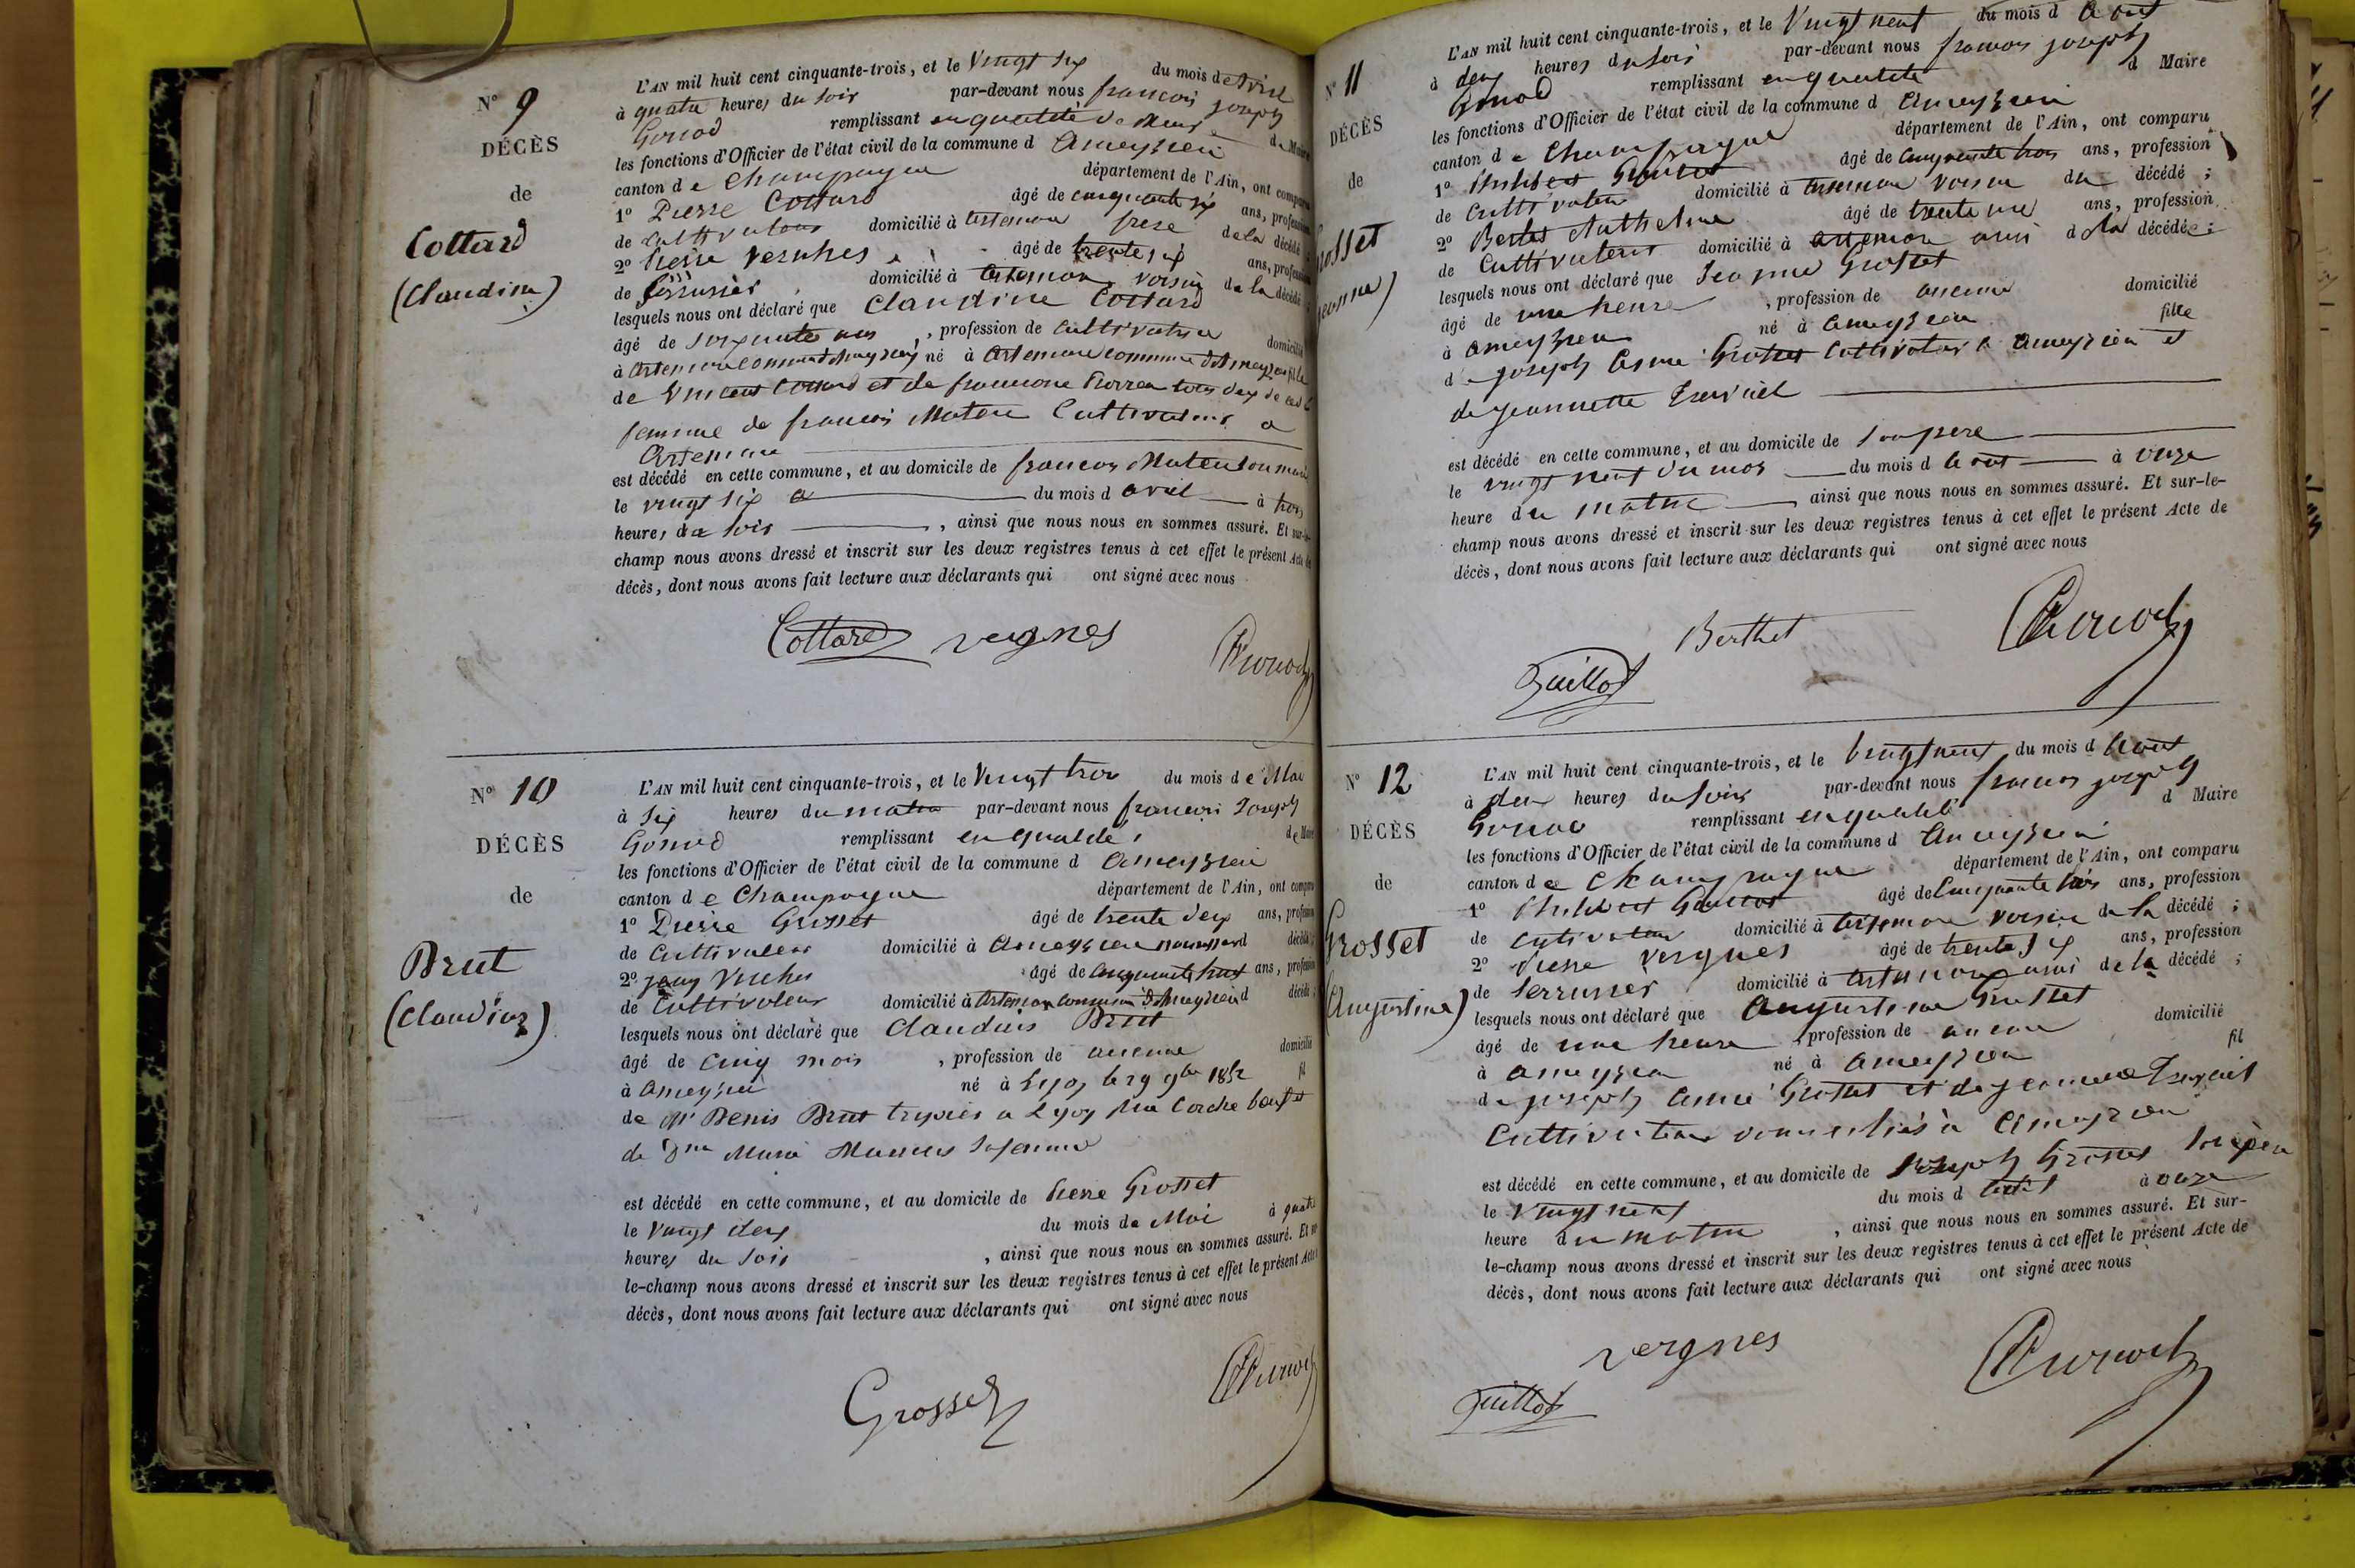 N° 9
DÉCÈS
de
Cottard
(Claudine)
L'AN mil huit cent cinquante-trois, et le Vingt six du mois d'avril
à quatre heures du soir par-devant nous francois joseph
Gonod remplissant en qualité de Maire
les fonctions d'Officier de l'état civil de la commune d Ameyzieu
canton de Champagne département de l'Ain, ont comparu
1° Pierre Cottard âgé de cinquante six ans, profession
de Cultivateur domicilié à Artemare frere de la décédé
2° Pierre Vergnes âgé de trente six ans, profession
de Serrurier domicilié à Artemare voisin de la décédé
lesquels nous ont déclaré que Claudine Cottard
âgé de soixante , profession de Cultivatrice domicilié
à Artemare commune d'Ameyzieu né à Artemare commune d'Ameyzieu fille
de Vincent Cottard et de francoise tous deux
femme de francois Cultivateur a
Artemare
est décédé en cette commune, et au domicile de francois son mari
le vingt six du mois d avril à trois
heures du soir , ainsi que nous nous en sommes assuré. Et sur-le-
champ nous avons dressé et inscrit sur les deux registres tenus à cet effet le présent Acte de
décès, dont nous avons fait lecture aux déclarants qui ont signé avec nous
Cottard Vergnes Gonod
N° 10
DÉCÈS
de
Brut
(Claudius)
L'AN mil huit cent cinquante-trois, et le Vingt trois du mois de Mai
à six heures du matin par-devant nous francois Joseph
Gonod remplissant en qualité de Maire
les fonctions d'Officier de l'état civil de la commune d Ameyzieu
canton de Champagne département de l'Ain, ont comparu
1° Pierre Grosset âgé de trente deux ans, profession
de Cultivateur domicilié à Ameyzieu d décédé ;
2° âgé de cinquante huit ans, profession
de Cultivateur domicilié à Artemare commune d'Ameyzieu d décédé ;
lesquels nous ont déclaré que Claudius Brut
âgé de cinq mois , profession de aucune domicilié
à Ameyzieu né à Lyon le 29 9bre 1852 fil
de Mr Denis Brut a Lyon Rue et
de Dme Marie sa femme
est décédé en cette commune, et au domicile de Pierre Grosset
le Vingt deux du mois de Mai à quatre
heures du soir , ainsi que nous nous en sommes assuré. Et sur-
le-champ nous avons dressé et inscrit sur les deux registres tenus à cet effet le présent Acte
décès, dont nous avons fait lecture aux déclarants qui ont signé avec nous
Grosset Gonod
N° 11
DÉCÈS
de
Grosset
(Jeanne)
L'AN mil huit cent cinquante-trois, et le Vingt neuf du mois d Aout
à deux heures du soir par-devant nous francois joseph
Gonod remplissant en qualité d Maire
les fonctions d'Officier de l'état civil de la commune d Ameyzieu
canton de Champagne département de l'Ain, ont comparu
1° Philibert Guillot âgé de cinquante trois ans, profession
de Cultivateur domicilié à Artemare voisin du décédé ;
2° Berthet Anthelme âgé de trente ans, profession
de Cultivateur domicilié à Artemare ami d la décédée ;
lesquels nous ont déclaré que Jeanne Grosset
âgé de une heure , profession de aucune domicilié
à Ameyzieu né à Ameyzieu fille
de joseph Aimé Grosset Cultivateur à Ameyzieu et
de Jeannette
est décédé en cette commune, et au domicile de son pere
le vingt neuf du mois du mois d Aout à onze
heure du matin ainsi que nous nous en sommes assuré. Et sur-le-
champ nous avons dressé et inscrit sur les deux registres tenus à cet effet le présent Acte de
décès, dont nous avons fait lecture aux déclarants qui ont signé avec nous
Berthet Gonod
Guillot
N° 12
DÉCÈS
de
Grosset
(Augustine)
L'AN mil huit cent cinquante-trois, et le vingt neuf du mois d Aout
à deux heures du soir par-devant nous francois joseph
Gonod remplissant en qualité d Maire
les fonctions d'Officier de l'état civil de la commune d Ameyzieu
canton de Champagne département de l'Ain, ont comparu
1° Philibert Guillot âgé de Cinquante trois ans, profession
de Cultivateur domicilié à Artemare voisin de la décédé ;
2° Pierre Vergnes âgé de trente six ans, profession
de Serrurier domicilié à Artemare ami de la décédé ;
lesquels nous ont déclaré que Augustine Grosset
âgé de une heure , profession de aucune domicilié
à Ameyzieu né à Ameyzieu fil
de joseph Aimé Grosset et de Jeannette
Cultivateurs domiciliés à Ameyzieu
est décédé en cette commune, et au domicile de Joseph Grosset son père
le Vingt neuf du mois d Aout à onze
heure du matin , ainsi que nous nous en sommes assuré. Et sur-
le-champ nous avons dressé et inscrit sur les deux registres tenus à cet effet le présent Acte de
décès, dont nous avons fait lecture aux déclarants qui ont signé avec nous
Vergnes Gonod
Guillot